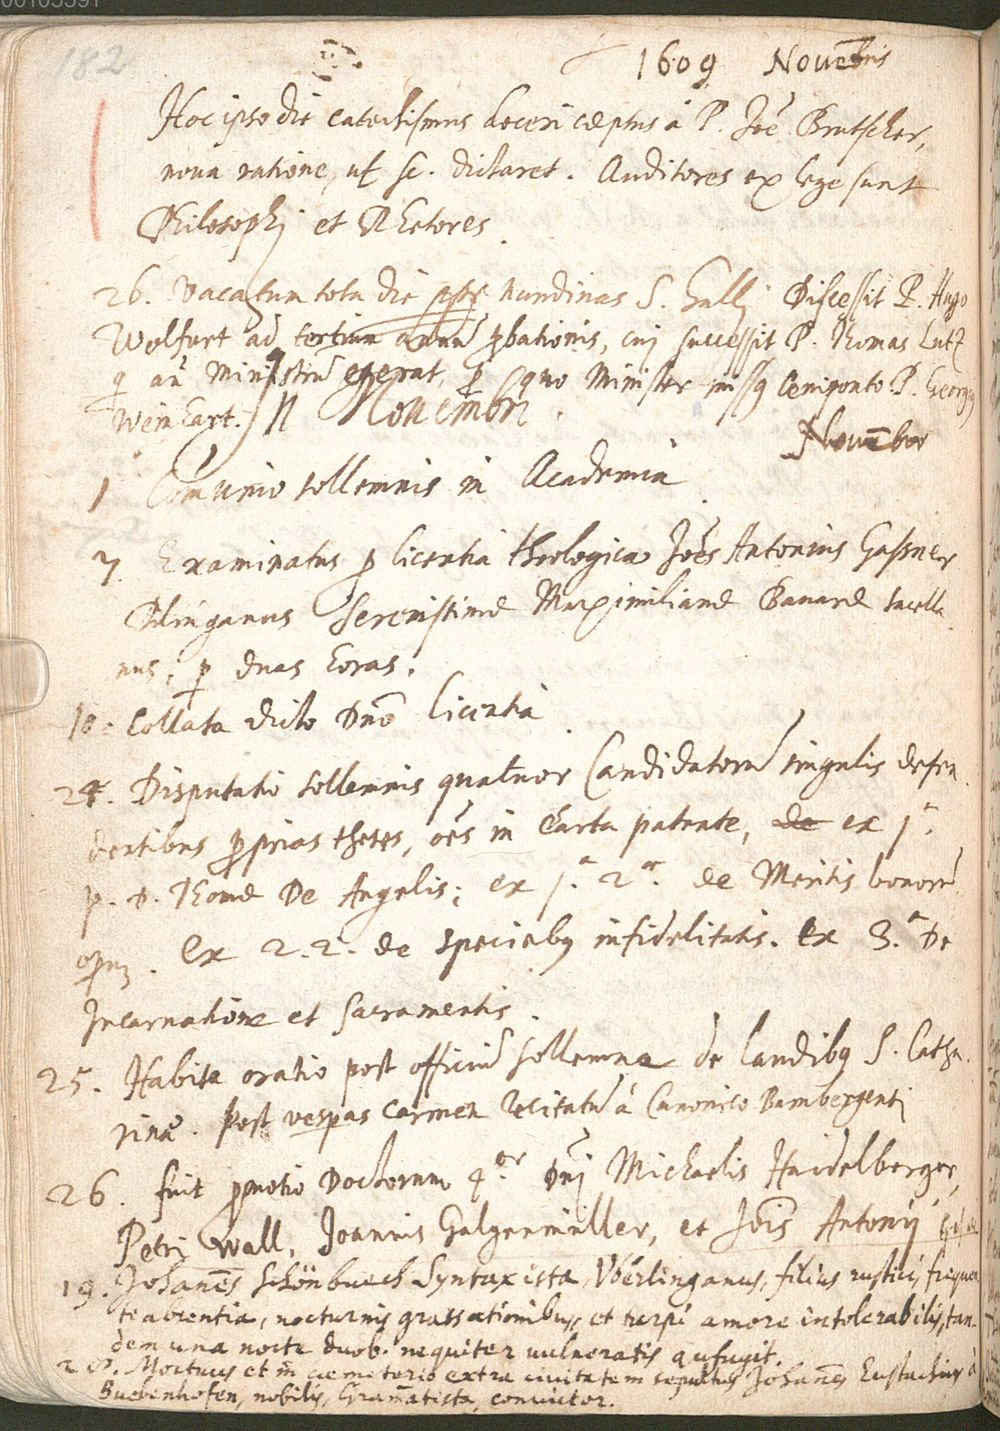 182
1609 Nouēbris
Hoc ipso die catechismus doceri cœptus à P. Joē Brutscher,
noua ratione, ut sc. dictaret. Auditores ex lege sunt
Philosophi et Rhetores.
26. Vacatum tota die Nundinas S. Galli Discessit P. Hugo
Wolfart ad tertium annū ꝓbationis, cui successit P. Thomas Lutz
q an Ministrū egerat, ꝓ quo Minister missꝰ Oeniponto P. Georgiꝰ
Weinhart. Nouēmbri
Nouēber
1 Comunio sollemnis in Academia
7. Examinatus ꝓ licentia theologica Joēs Antonius Gassner
Dilinganus Serenissimæ Maximilianæ Bauaræ sacella
nus, ꝑ duas horas.
10. Collata dicto Dn̄o licentia
24. Disputatio sollemnis quatuor Candidatorū singulis defen
dentibus ꝓprias theses, oēs in charta patente, de ex 1.ᵃ
p. D. Thomæ De Angelis; ex 1.ᵃ 2.ᵃᵉ de Meritis bonorū
operū. Ex 2.2. de speciebꝰ infidelitatis. Ex 3.ᵃ De
Incarnatione et Sacramentis.
25. Habita oratio post officiū sollemne de laudibꝰ S. Catha
rinæ. Post vesꝑas Carmen recitatū à Canonico Bambergensi
26. fuit ꝓmotio Doctorum 4.ᵒʳ Dn̄i Michaelis Haidelberger,
Petri Wall, Joannis Galgenmüller, et Jōis Antonij
19. Johanēs Schönbuech Syntaxista, Vberlinganus, filius rustici, freque
te absentia, nocturnis grassationibus, et turpi amore intolerabilis, tan-
dem una nocte duob. nequiter vulneratis aufugit.
28. Mortuus et in cœmeterio extra ciuitatem sepultus Johanēs Eustachius à
Buebenhofen, nobilis, Gram̄atista, conuictor.